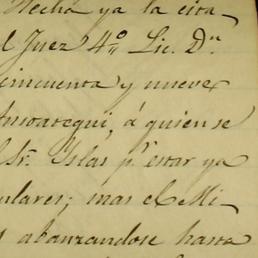 Hecha ya la cita
l Juez 4º Lic. Dn.
cincuenta y nueve
Ansoategui, á quien se
Sr. Islas pr. estar ya
ulares; mas el Mi
abanzandose hasta